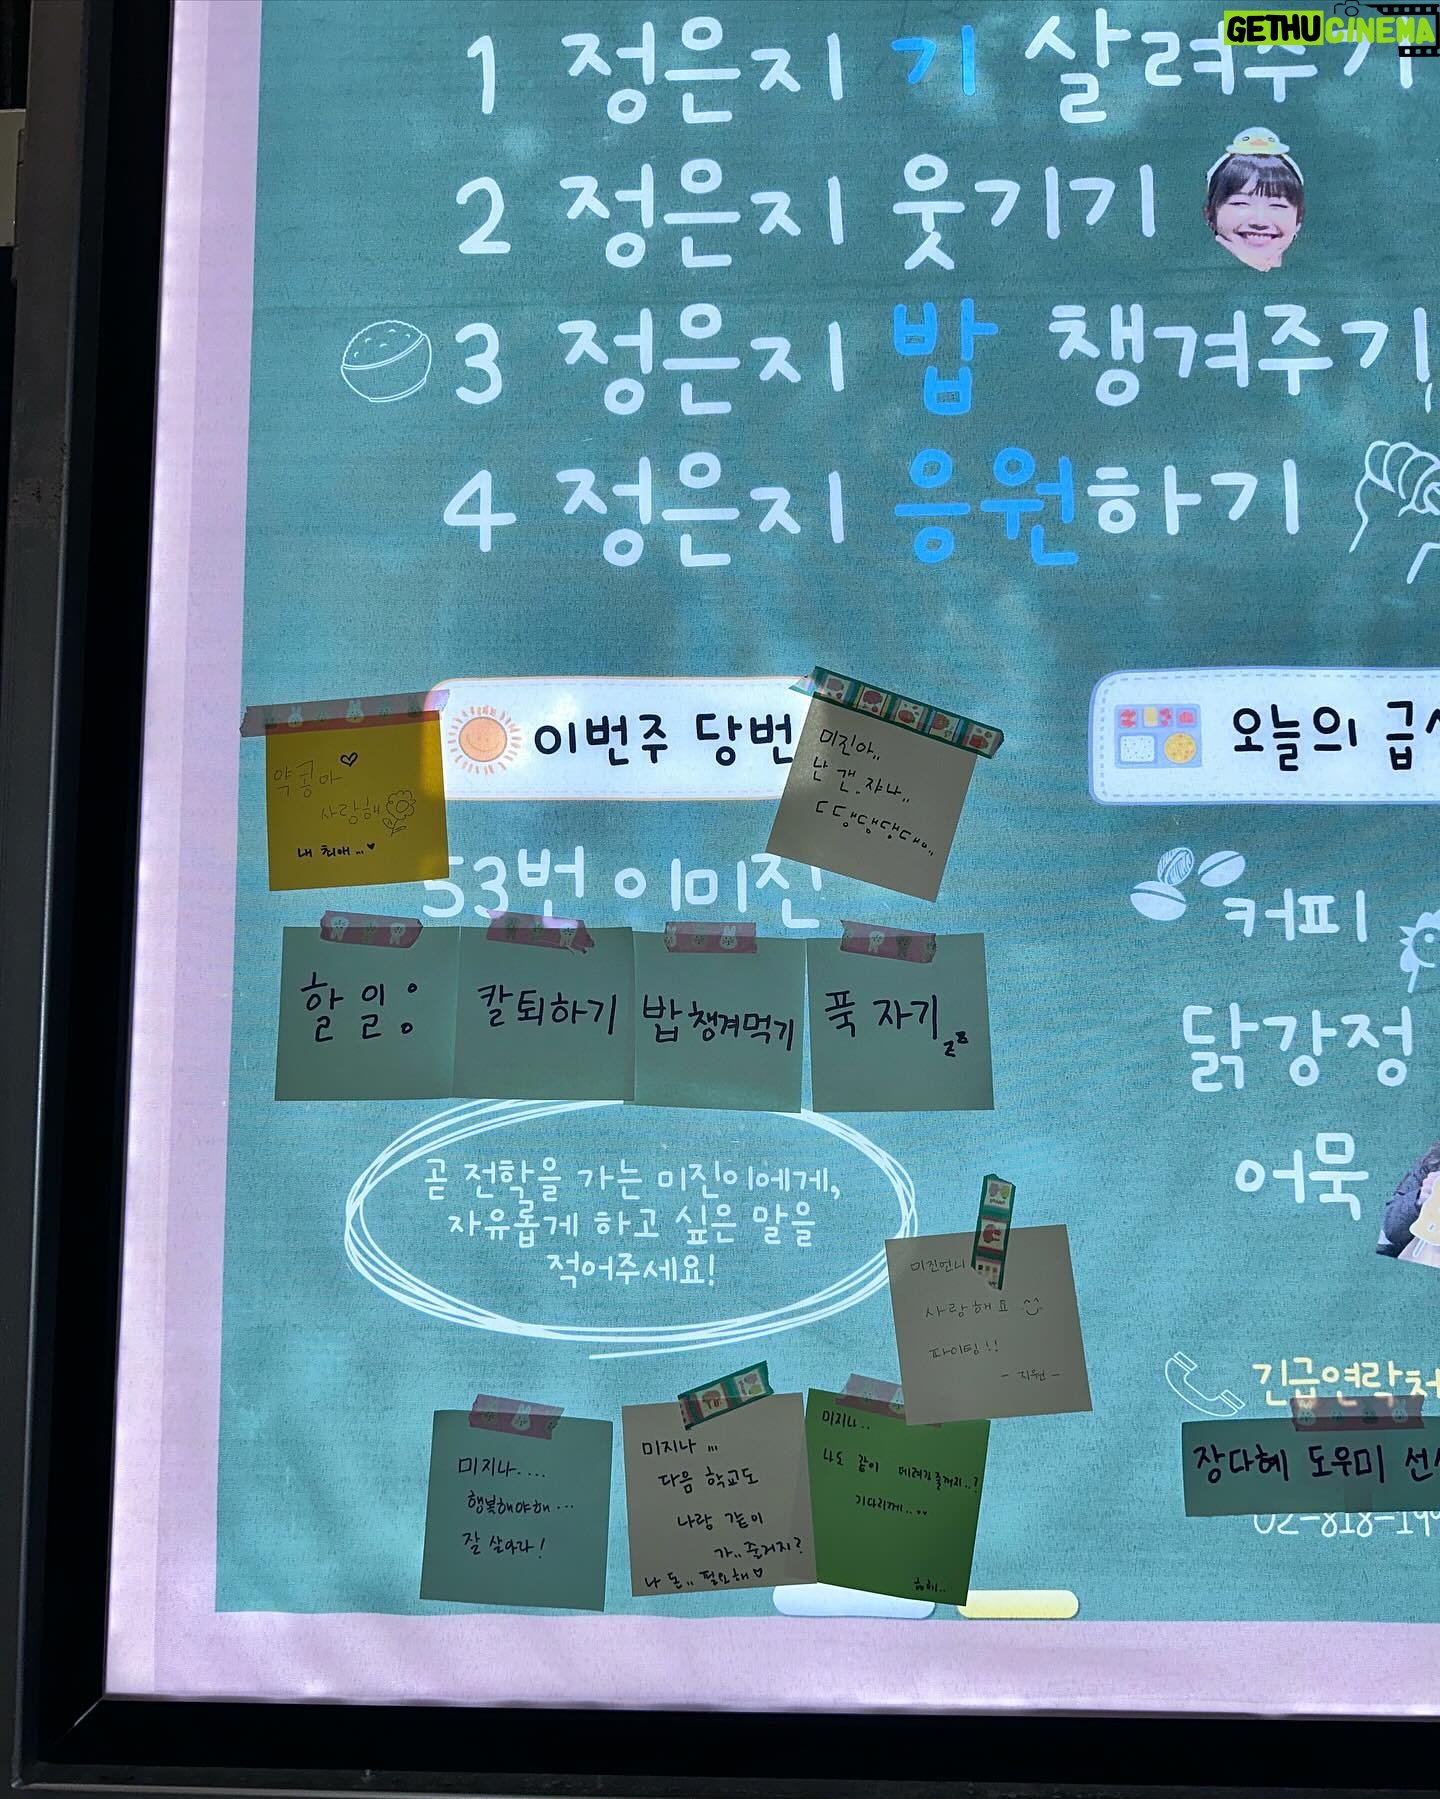 GETHU CINEMA
1 정은지 기 살려주기
2 정은지 웃기기
3 정은지 밥 챙겨주기
4 정은지 응원하기
이번주 당번
약콩아
사랑해
내 최애...
미진아..
난 갠.쟈나..
ㄷ댕댕댕대..
53번 이미진
할 일:
칼퇴하기
밥 챙겨먹기
푹 자기
곧 전학을 가는 미진이에게,
자유롭게 하고 싶은 말을
적어주세요!
미진언니
사랑해요
파이팅!!
- 지원 -
미지나....
행복해야해...
잘 살아라!
미지나 ...
다음 학교도
나랑 같이
가..줄거지?
나 돈.. 필요해
미지나..
나도 같이 데려가줄꺼지..?
기다리께..
오늘의 급
커피
닭강정
어묵
긴급연락처
장다혜 도우미 선
02-818-199